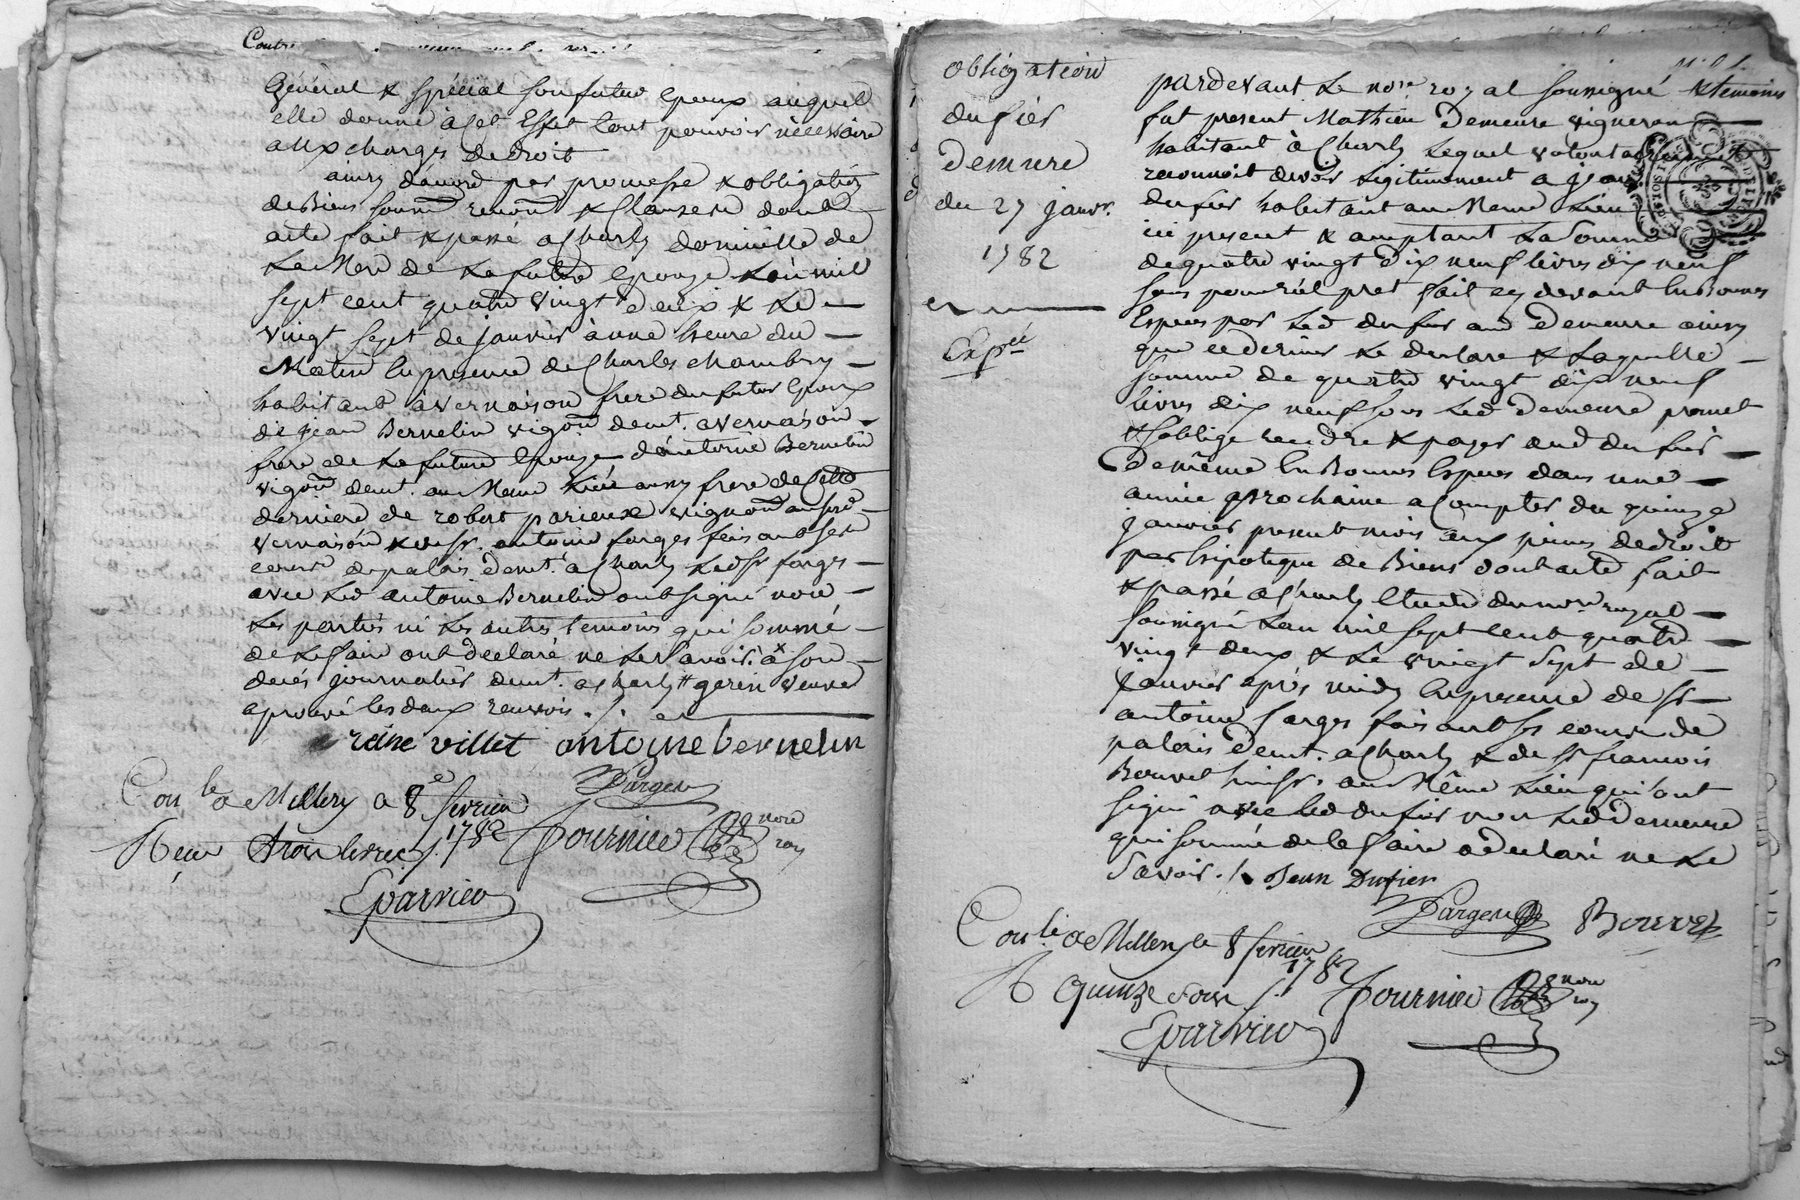 Contr
Général & spécial son futur Epoux auquel
elle donne à Cet Effet tout pouvoir nécessaire
aux charges de droit
ainsy daccord par promesse & obligation
de Biens soum renon & Clause dont
acte fait & passé a Charly domicille de
La Mere de La future Epouze L'an mil
sept cent quatre vingt deux & Le
vingt sept de janvier à une heure du
Matin En presence de Charles chambry
habitant à vernaison frere du futur Epoux
de jean Bernelin vigon demt. a vernaison
frere de La future Epouze d'antoine Bernelin
vigon demt. au Meme Lieu aussy frere de Cette
derniere de robert parieux vigneron au sd
vernaison & de sr. antoine farges faisant ses
cours de palais demt. à Charly Led sr farges
avec Led antoine Bernelin ont signé non
Les parties ni Les autres temoins qui sommé
de Le faire ont declaré ne Le savoir. à son
decés journalier demt. a charly # gerin veuve
aprouvé les deux renvois ./.
reine villet antoine bernelin
Con le a Millery a 8e fevrier
1782
fargeu
Reçu trois livres ./.
fournier nore
roy
Eparvier
obligation
dufier
demeure
du 27 janvr.
1782
Expée
pardevant Le nore royal soussigné & temoins
fut present Mathieu Demeure vigneron
habitant à Charly Lequel volontairement
reconnoit devoir Legitimement a jean
dufier habitant au Meme Lieu
ici present & acceptant La Somme
de quatre vingt dix neuf livres dix neuf
sous pour réel pret fait cy devant En Bonnes
Especes par Led dufier aud Demeure ainsy
que ce dernier Le declare & Laquelle
somme de quatre vingt dix neuf
livres dix neuf sous Led Demeure promet
& soblige rendre & payer aud dufier
de même En Bonnes Especes dans une
année prochaine a Compter du quinze
janvier present mois aux peines de droit
par hipoteque de Biens dont acte fait
& passé a Charly Etude du nore royal
soussigné L'an mil sept cent quatre
vingt deux & Le vingt sept de
janvier après midy En presence de sr
antoine farges faisant ses cours de
palais demt. a Charly & de sr francois
Bouvet huissr. au Même Lieu qui ont
signé avec led dufier non Led Demeure
qui sommé de le faire a declaré ne Le
savoir ./. Jean Dufier
fargeu Bouvet
Con le a Millery le 8 fevrier
1782
R quinze sous ./.
fournier nore
roy
Eparvier